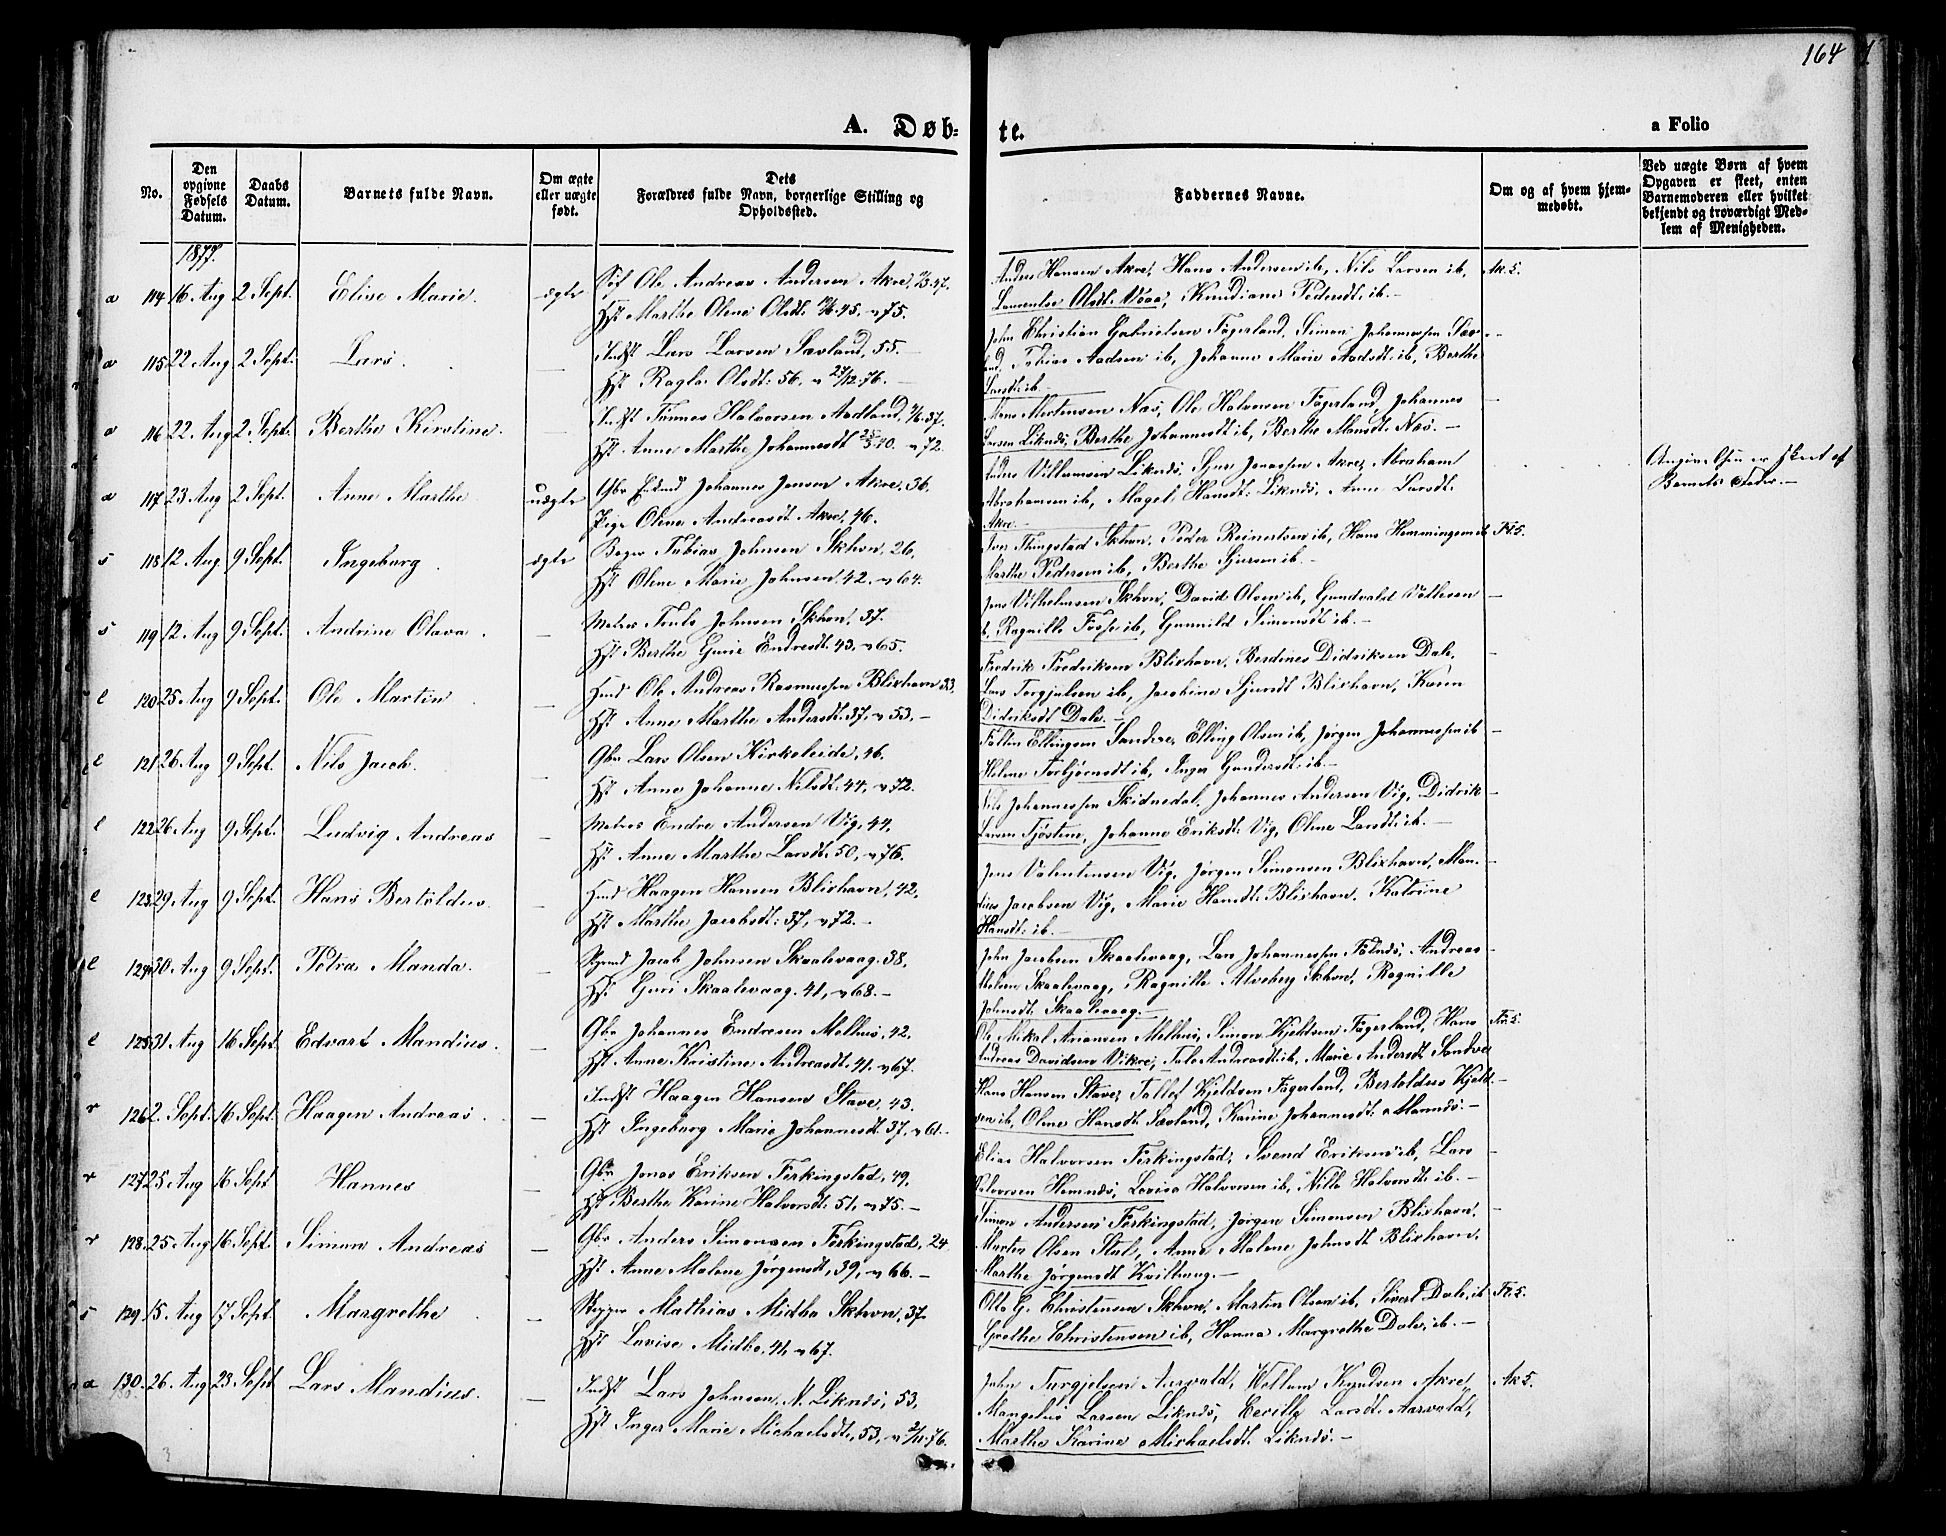 164 1
A. Døb-
te.
a Folio
No.
Den opgivne Fødsels Datum.
Daabs Datum.
Barnets fulde Navn.
Om ægte eller uægte født.
Dets Forældres fulde Navn, borgerlige Stilling og Opholdssted.
Faddernes Navne.
Om og af hvem hjem-
medøbt.
Ved uægte Børn af hvem
Opgaven er skeet, enten
Barnemoderen eller hvilket
bekjendt og troværdigt Med-
lem af Menigheden.
1877.
a 114 16 Aug 2 Sept. Elise Marie. ægte Ole Andreas Andersen Akre, 47.
Hst Marthe Oline Olsdt. 45. v 75.
Anders Hansen Akre, Hans Andersen ib, Nils Larsen ib, Ak 5.
Olsdt. Vaaa, Knudiane Pedersdt. ib.—
a 115 22 Aug 2 Sept. Lars. — Indst Lars Larsen Sævland, 55.
Hst Ragla Olsdt. 56. v 27/12 76.—
John Christian Gabrielsen Fagerland, Simon Johannessen Sæv-
land, Tobias Aadsen ib, Johanne Marie Aadsdt ib, Berthe
Larsdt. ib.—
a 116 22 Aug 2 Sept. Berthe Kirstine. — Indst Tønnes Halvorsen Aadland, 37.
Hst Anne Marthe Johannesdt 40. v 72.
Mortensen Næs, Ole Halvorsen Fagerland, Johannes
Larsen Liknæs, Berthe Johannesdt ib, Berthe Monsdt. Næs.—
a 117 23 Aug 2 Sept. Anne Marthe uægte Gbr Johannes Jensen Akre, 36.
Pige Oline Andreasdt Akre, 46.
Anders Villumsen Liknæs, Sjur Jonassen Akre, Abraham
Abrahamsen ib, Magel Hansdt. Liknæs, Anne Larsdt.
Akre.—
Angivelsen er skeet af
Barnets Fader.—
s 118 12 Aug 9 Sept. Ingeborg. ægte Bager Tobias Johnsen Skhvn, 26,
Hst Oline Marie Johnsen, 42. v 64.
Iver Thingstad Skhvn, Peder Reinertsen ib, Hans Hemmingsen ib Fr. 5.
Marthe Pedersen ib, Berthe Sjursen ib.—
s 119 12 Aug 9 Sept. Andrine Olava. — Johnsen Skhvn, 37.
Hst Berthe Gurie Endresdt. 43, v 65.
Jens Vilhelmsen Skhvn, David Olsen ib, Gundvald Vallesen
ib, Ragnille Fosse ib, Gunnild Simonsdt ib.—
e 120 25 Aug 9 Sept. Ole Martin — Ole Andreas Rasmussen Blixhavn 33,
Hst Anne Marthe Andersdt. 37, v 53,—
Fredrik Fredriksen Blixhavn, Berdines Didriksen Dale,
Lars Torgjulsen ib, Jacobine Sjursdt Blixhavn, Karen
Didriksdt Dale.—
e 121 26 Aug 9 Sept. Nils Jacob. — Gbr Lars Olsen Kirkeleide, 46.
Hst Anne Johanne Nilsdt. 44, v 72.
Ellingsen Sandve, Elling Olsen ib, Jørgen Johannessen ib
Helene Torbjørnsdt ib, Inger Gundersdt. ib—
e 122 26 Aug 9 Sept. Ludvig Andreas — Endre Andersen Vig, 44,
Hst Anne Marthe Larsdt. 50, v 76.
Nils Johannessen Skidnedal, Johannes Andersen Vig, Didrik
Larsen Tjøstem, Johanne Eriksdt. Vig, Oline Larsdt. ib.—
e 123 29 Aug 9 Sept. Hans Bertoldus. — Haagen Hansen Blixhavn, 42,
Hst Marthe Jacobsdt. 37, v 72.—
Jens Valentinsen Vig, Jørgen Simonsen Blixhavn, Man-
dius Jacobsen Vig, Marie Hansdt. Blixhavn, Katrine
Hansdt. ib.—
e 124 30 Aug 9 Sept. Petra Manda. — Jacob Johnsen Skaalevaag. 38,
Hst Guri Skaalevaag. 41, v 68.—
John Jacobsen Skaalevaag, Lars Johannessen Andreas
Skaalevaag, Ragnille Alvsberg Skhvn, Ragnille
Johnsdt. Skaalevaag.—
e 125 31 Aug 16 Sept. Edvart Mandius. — Gbr Johannes Endresen Melhus, 42.
Hst Anne Kristine Andreasdt. 41. v 67.
Ole Mikal Melhus, Simon Kjeldsen Fagerland, Hans Fr. 5.
Andreas Davidsen Vikre, Andreasdt. ib, Marie Andersdt. Sandve
r 126 2. Sept. 16 Sept. Haagen Andreas. — Indst Haagen Hansen Stave, 43.
Hst Ingeborg Marie Johannesdt. 37, v 61.—
Hans Hansen Stave, Tallef Kjeldsen Fagerland, Bertoldus Kjeld-
sen ib, Oline Hansdt. Sævland, Karine Johannesdt.
r 127 25 Aug 16 Sept Hannes — Gbr Jonas Eriksen Ferkingstad, 49.
Hst Berthe Karine Halvorsdt. 51, v 75.—
Elias Halvorsen Ferkingstad, Svend Eriksen ib, Lars
Halvorsen Hemnæs, Lovise Halvorsen ib, Nille Halvorsdt. ib.—
r 128. 25 Aug 16 Sept. Simon Andreas — Gbr Anders Simonsen Ferkingstad, 24
Hst Anne Malene Jørgensdt, 39, v 66.—
Simon Andersen Ferkingstad, Jørgen Simonsen Blixhavn,
Martin Olsen Stol, Anne Malene Johnsdt Blixhavn,
Marthe Jørgensdt —
s 129 15 Aug 17 Sept. Margrethe — Mathias Midbø Skhvn, 37.
Hst Lovise Midbø, 41, v 67.
Otto G. Christensen Skhvn, Martin Olsen ib, Sivert Dale, ib Fr. 5.
Grethe Christensen ib, Hanna Margrethe Dale, ib.—
a 130. 26. Aug 23 Sept Lars Mandius. — Indst Lars Johnsen, N. Liknæs, 53,
Hst Inger Marie Michaelsdt, 53, v 76.
John Torgjelsen Aarvold, Wellum Knudsen Akre, Ak 5.
Mangelus Larsen Liknæs, Larsdt. Aarvold,
Marthe Karine Michaelsdt. Liknæs.—